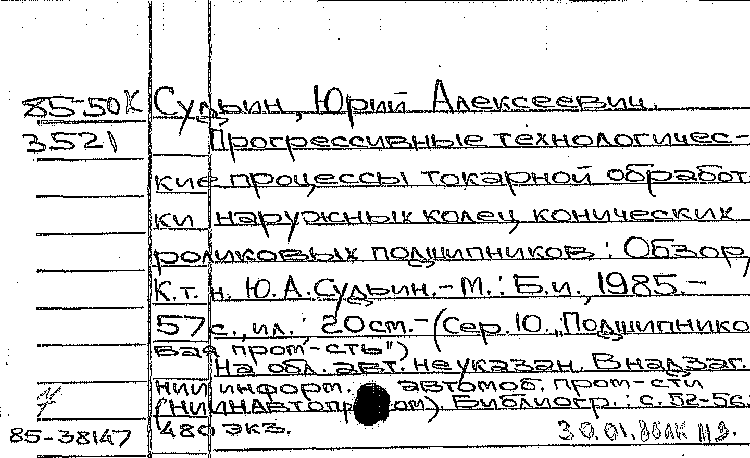 85-50К Судьин, Юрий Алексеевич.
3521 Прогрессивные технологичес-
кие процессы токарной обработ-
ки наружных колец конических
роликовых подшипников: Обзор,
К.т.н. Ю.А.Судьин.-М.: Б.и., 1985.-
57с., ил.; 20см.-(Сер. 10. „Подшипнико-
вая пром-сть")
На обл. авт. не указан. В надзаг.
НИИ информ. автомоб. пром-сти
(НИИНАвтопром). Библиогр.: с. 52-56.
85-38147 480 экз. 30.01.86